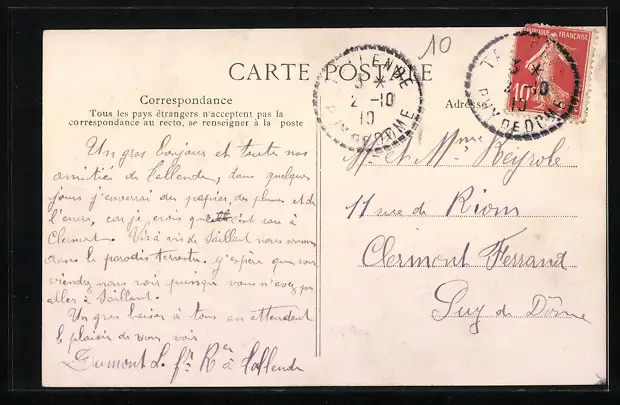 10
CARTE POSTALE
Correspondance
Tous les pays étrangers n'acceptent pas la
correspondance au recto, se renseigner à la poste
Adresse
TALLENDE
3 *
2 -10
10
PUY DE DOME
3 *
2 -10
10
PUY DE DOME
RÉPUBLIQUE FRANÇAISE
10
Un gros bonjour et toutes nos
amitié de Tallende, dans quelques
jours j'enverrai des papier, des plumes et de
l'encre, car je crois que c'est rare à
Clermont. Vis à vis de Saillant nous sommes
dans le paradis terrestre. j'espère que vous
viendrez nous voir puisque vous n'avez pas
aller à Saillant.
Un gros baiser à tous en attendant
le plaisir de vous voir
Dumont L. fr Rer à Tallende
Mr et Mme Reyrole
11 rue de Riom
Clermont Ferrand
Puy de Dôme